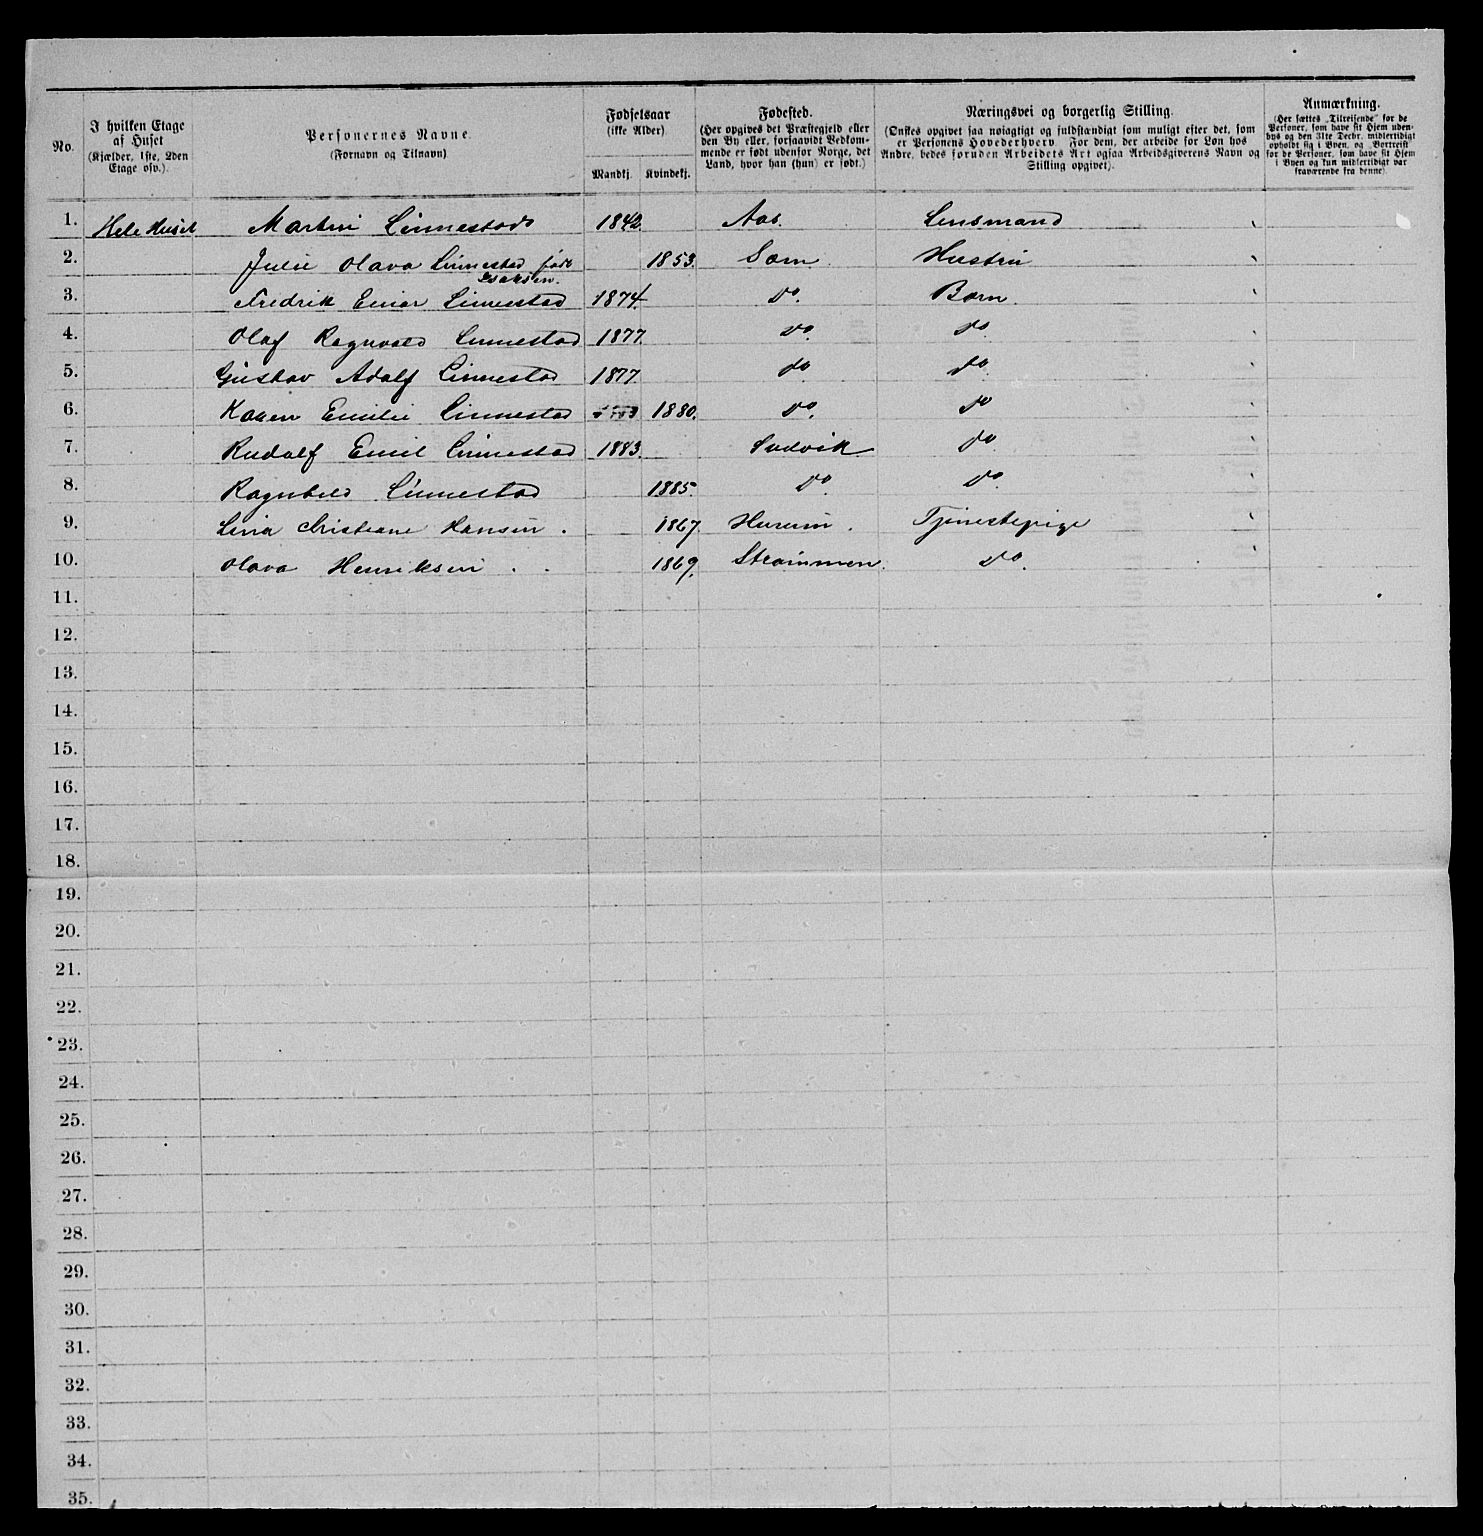 No.
I hvilken Etage
af Huset
(Kjælder, 1ste, 2den
Etage osv.).
Personernes Navne.
(Fornavn og Tilnavn)
Fødselsaar
(ikke Alder)
Mandkj. Kvindekj.
Fødested.
(Her opgives det Præstegjeld eller
den By eller, forsaavidt Vedkom-
mende er født udenfor Norge, det
Land, hvor han (hun) er født.)
Næringsvei og borgerlig Stilling.
(Ønskes opgivet saa nøiagtigt og fuldstændigt som muligt efter det, som
er Personens Hovederhverv. For dem, der arbeide for Løn hos
Andre, bedes foruden Arbeidets Art ogsaa Arbeidsgiverens Navn og
Stilling opgivet).
Anmærkning.
(Her sættes „Tilreisende“ for de
Personer, som have sit Hjem uden-
bys og den 31te Decbr. midlertidigt
opholdt sig i Byen, og „Bortreist“
for de Personer, som have sit Hjem
i Byen og kun midlertidigt var
fraværende fra denne).
1. Hele Huset Martin Linnestad 1842 Aas. Lensmand
2. Julie Olava Linnestad født 1853. Sem Hustru
Isaksen.
3. Fredrik Einar Linnestad 1874 do. Børn.
4. Olaf Ragnvald Linnestad 1877. do. do.
5. Gustav Adolf Linnestad 1877. do. do.
6. Karen Emilie Linnestad 1880. do. do
7. Rudolf Emil Linnestad 1883. Svelvik do.
8. Ragnhild Linnestad 1885. do. do.
9. Lina Christiane Hansen. 1867. Hurum. Tjenestepige
10. Olava Henriksen . . 1869. Strømmen. do.
11.
12.
13.
14.
15.
16.
17.
18.
19.
20.
21.
22.
23.
24.
25.
26.
27.
28.
29.
30.
31.
32.
33.
34.
35.